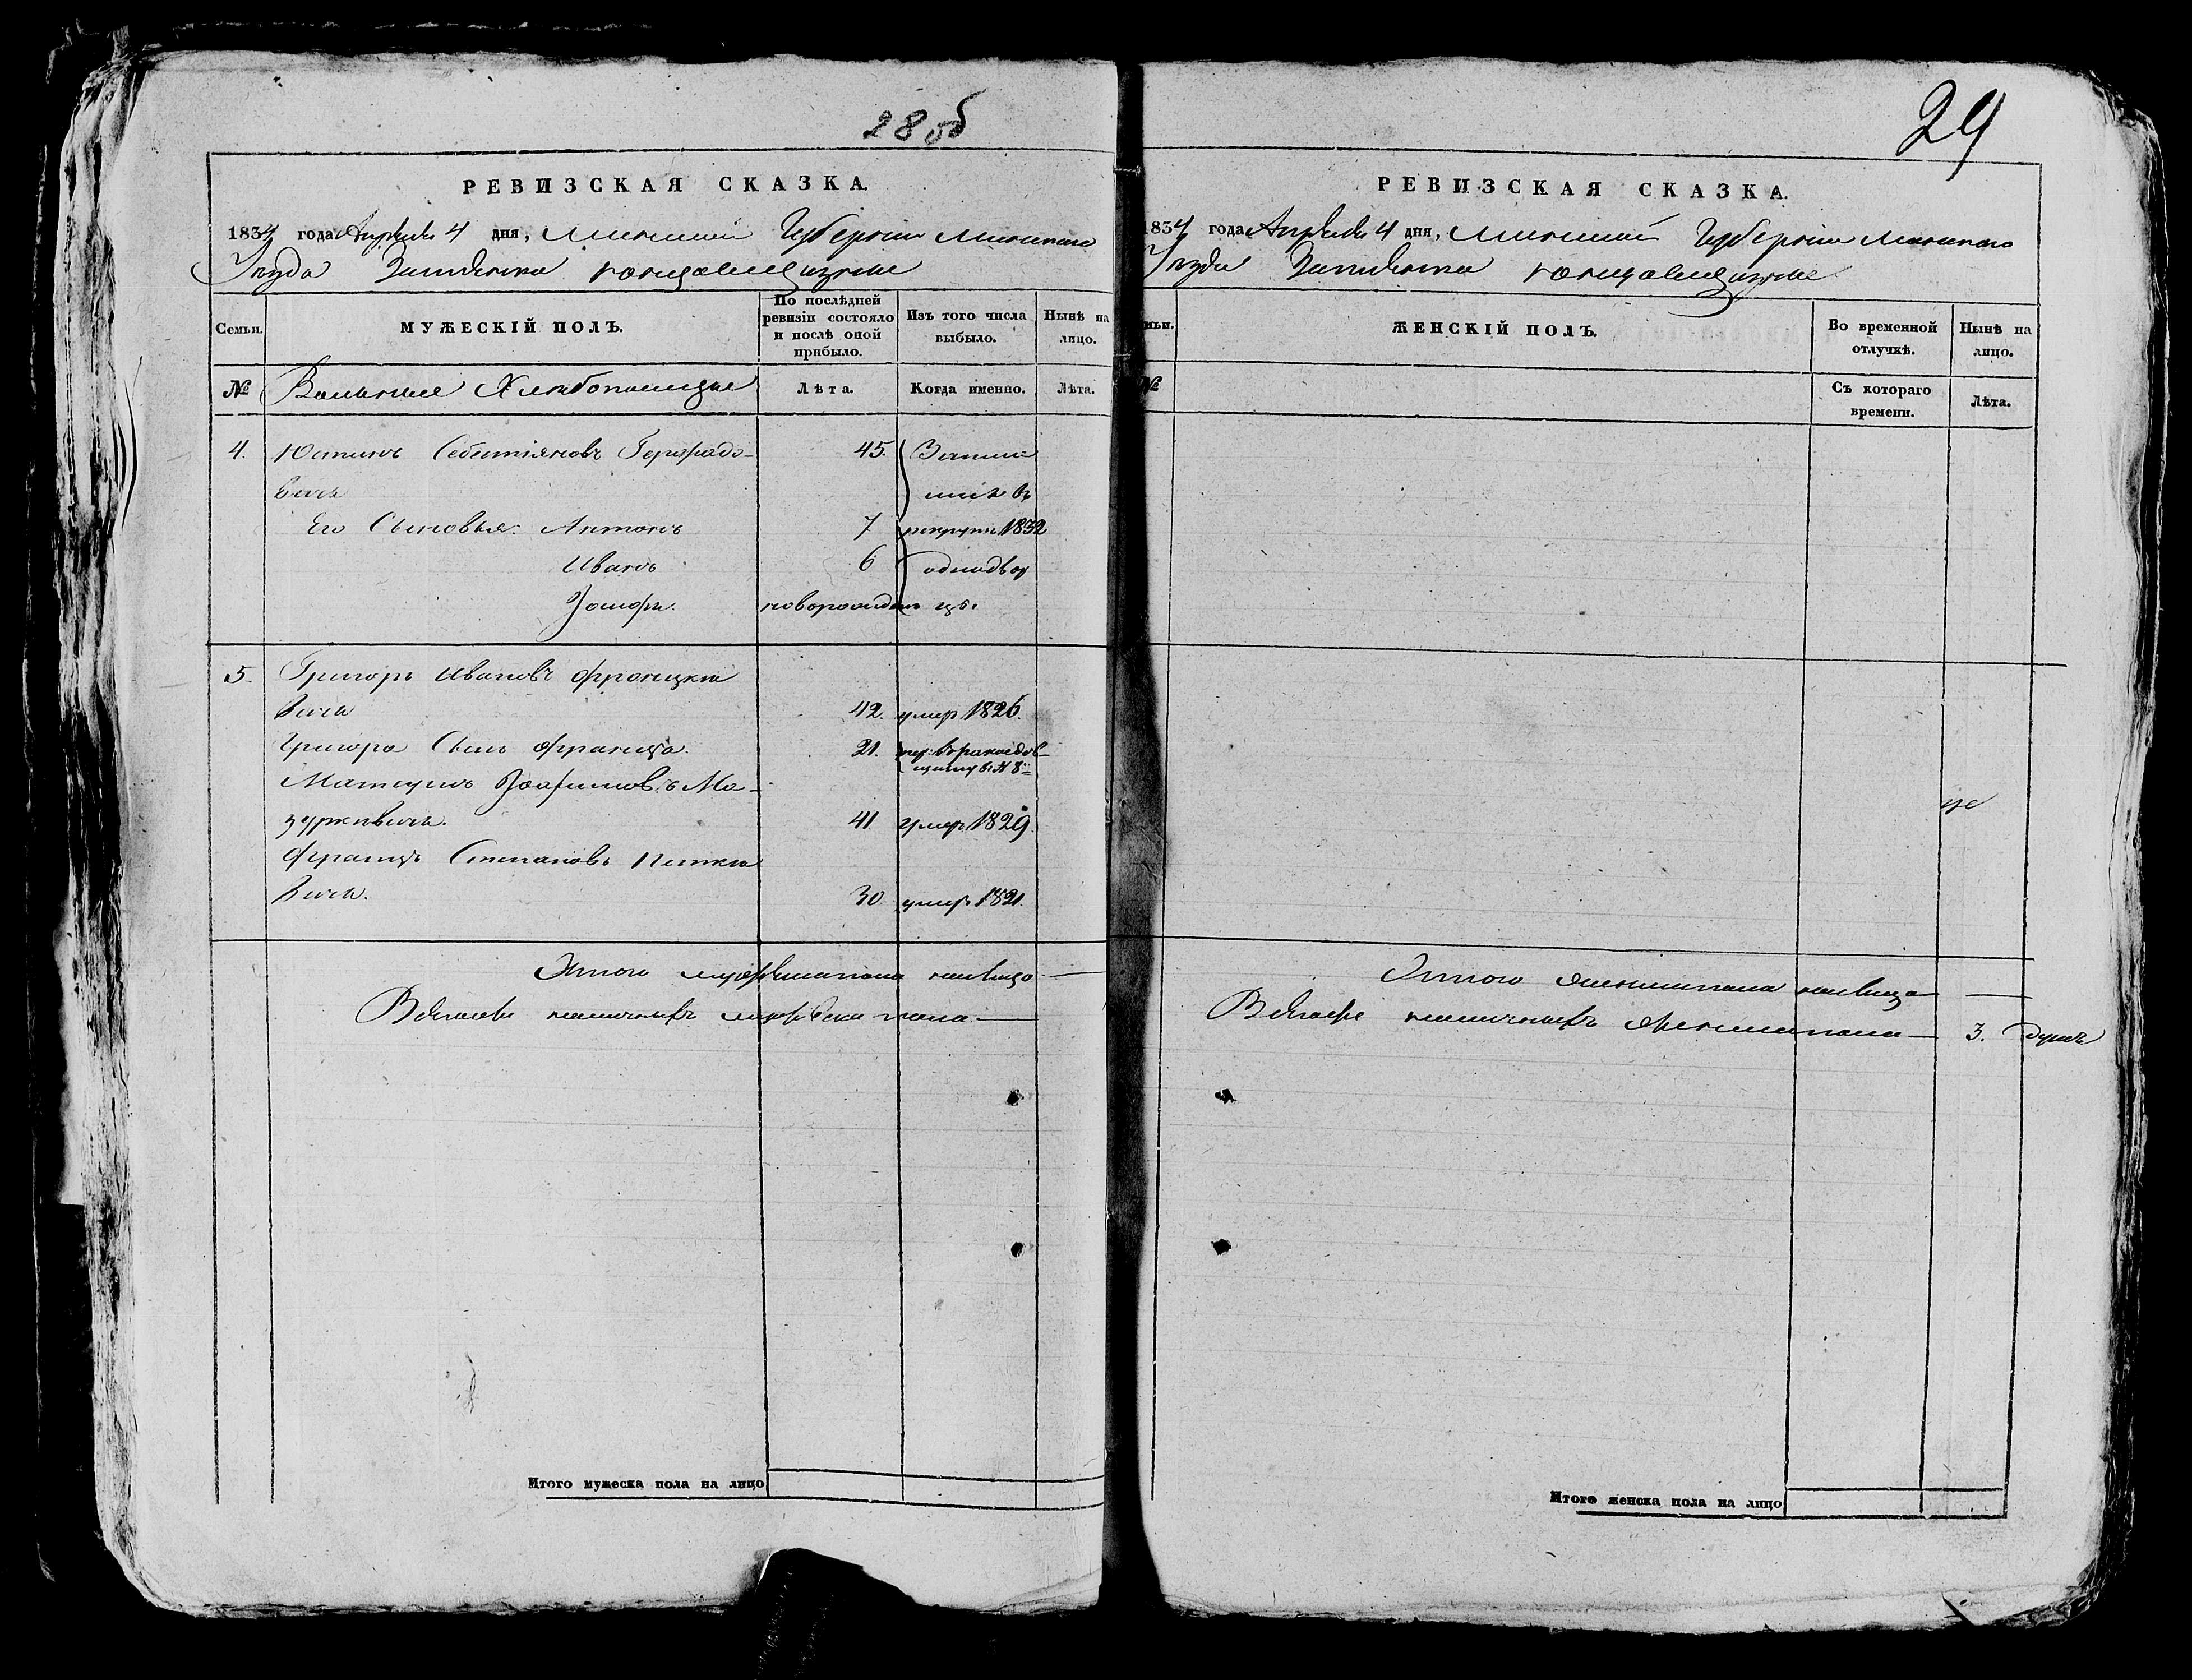 28 об
РЕВИЗСКАЯ СКАЗКА.
1834 года Апреля 4 дня, Минской Губернии Минскаго
Уезда Застенка
Семьи.
МУЖЕСКІЙ ПОЛЪ.
По послѣдней ревизіи состояло и послѣ оной прибыло.
Изъ того числа выбыло.
Нынѣ на лицо.
№
Вольные Хлебопашцы
Лѣта.
Когда именно.
Лѣта.
4. Юстинъ Себестіяновъ 45.
вичъ
Его Сыновья: Антонъ 7
рекруты 1832
Иванъ 6
Іосифъ новорожден
5. Григоръ Ивановъ Францке
вичъ 42. умер 1826.
Григора Сынъ Франца. 21.
Матеушъ Мо-
зуркевичъ. 41 умер 1829.
Францъ Степановъ Петке
вичъ. 30 умер 1821.
Итого мужеска пола налицо —
Вообще наличныхъ мужеска пола —
Итого мужеска пола на лицо
29
РЕВИЗСКАЯ СКАЗКА.
1834 года Апреля 4 дня, Минской Губернии Минскаго
Уезда Застенка
мьи.
ЖЕНСКІЙ ПОЛЪ.
Во временной отлучкѣ.
Нынѣ на лицо.
№
Съ котораго времени.
Лѣта.
Итого женска пола налицо —
наличныхъ женска пола — 3. душъ
Итого женска пола на лицо